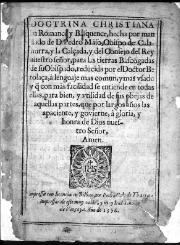 DOCTRINA CHRISTIANA
en Romance, y Basquence, hecha por man
dado de D. Pedro Manso, Obispo de Cala-
horra, y la Calçada, y del Consejo del Rey
nuestro señor, para las tierras Bascógadas
de su Obispado, reducida por el Doctor B
tolaça, à lengoaje mas comun, y mas vsado
y q con mas facilidad se entiende en todas
ellas, para bien, y vtilidad de sus obejas de
aquellas partes, que por largos años las
apaciente, y govierne, à gloria, y
honra de Dios nues-
tro Señor,
Amen.
IHS
Impressa con licencia en Bilbao por
Impressor
de 1596.